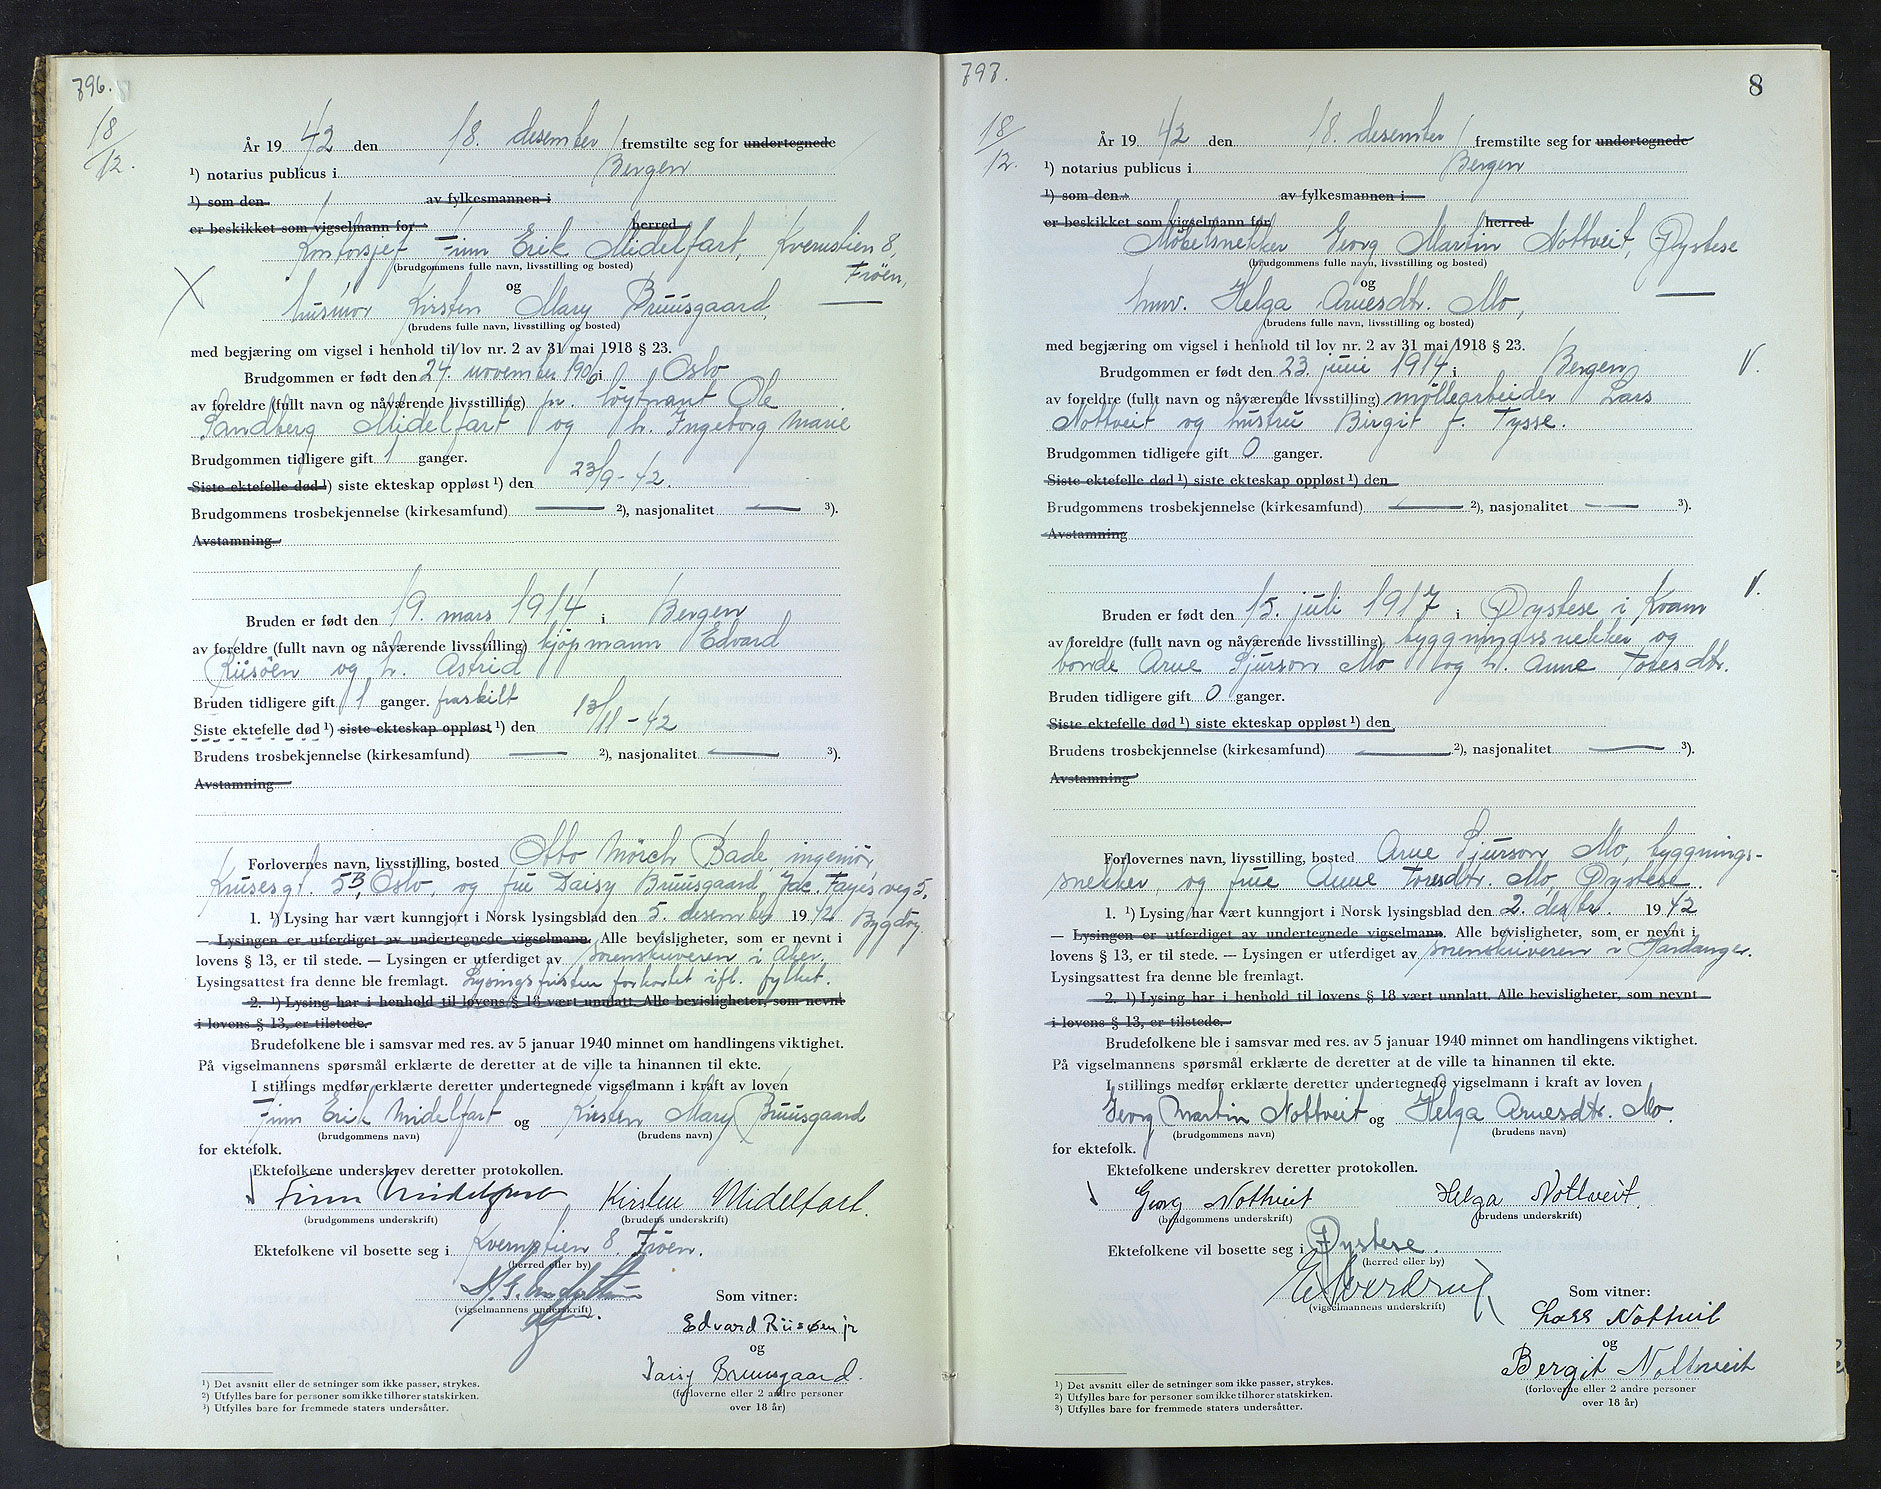 796.
18/12.
År 19 42 den 18. desember fremstilte seg for undertegnede
¹) notarius publicus i Bergen
¹) som den av fylkesmannen i
er beskikket som vigselmann for herred
Kontorsjef Finn Erik Midelfart, Kvernstien 8,
(brudgommens fulle navn, livsstilling og bosted)
Frøen,
og
husmor Kirsten Mary Bruusgaard,
(brudens fulle navn, livsstilling og bosted)
med begjæring om vigsel i henhold til lov nr. 2 av 31 mai 1918 § 23.
Brudgommen er født den 24. november 1906 i Oslo
av foreldre (fullt navn og nåværende livsstilling) pr. löytnant Ole
Sandberg Midelfart og h. Ingeborg Marie
Brudgommen tidligere gift 1 ganger.
Siste ektefelle død ¹) siste ekteskap oppløst ¹) den 23/9-42.
Brudgommens trosbekjennelse (kirkesamfund) — ²), nasjonalitet — ³).
Avstamning
Bruden er født den 19. mars 1914 i Bergen
av foreldre (fullt navn og nåværende livsstilling) kjöpmann Edvard
Riisöen og h. Astrid
Bruden tidligere gift 1 ganger. fraskilt
Siste ektefelle død ¹) siste ekteskap oppløst ¹) den 13/11-42
Brudens trosbekjennelse (kirkesamfund) — ²), nasjonalitet — ³).
Avstamning
Forlovernes navn, livsstilling, bosted Otto Mörch Bade, ingeniör,
Krusesgt. 5B, Oslo, og frue Daisy Bruusgaard, Jac. Fayes veg 5,
1. ¹) Lysing har vært kunngjort i Norsk lysingsblad den 5. desember 1942 Bygdöy.
— Lysingen er utferdiget av undertegnede vigselmann. Alle bevisligheter, som er nevnt i
lovens § 13, er til stede. — Lysingen er utferdiget av sorenskriveren i Aker.
Lysingsattest fra denne ble fremlagt. Lysingsfristen forkortet ifl. fylket.
2. ¹) Lysing har i henhold til lovens § 18 vært unnlatt. Alle bevisligheter, som nevnt
i lovens § 13, er tilstede.
Brudefolkene ble i samsvar med res. av 5 januar 1940 minnet om handlingens viktighet.
På vigselmannens spørsmål erklærte de deretter at de ville ta hinannen til ekte.
I stillings medfør erklærte deretter undertegnede vigselmann i kraft av loven
Finn Erik Midelfart og Kirsten Mary Bruusgaard
(brudgommens navn) (brudens navn)
for ektefolk.
Ektefolkene underskrev deretter protokollen.
Finn Midelfart Kirsten Midelfart.
(brudgommens underskrift) (brudens underskrift)
Ektefolkene vil bosette seg i Kvernstien 8. Frøen.
(herred eller by)
(vigselmannens underskrift)
Som vitner:
Edvard Riisøen jr
og
Daisy Bruusgaard.
(forloverne eller 2 andre personer
over 18 år)
¹) Det avsnitt eller de setninger som ikke passer, strykes.
²) Utfylles bare for personer som ikke tilhører statskirken.
³) Utfylles bare for fremmede staters undersåtter.
797.
8
18/12.
År 19 42 den 18. desember fremstilte seg for undertegnede
¹) notarius publicus i Bergen
¹) som den av fylkesmannen i
er beskikket som vigselmann for herred
Møbelsnekker Georg Martin Nottveit, Øystese
(brudgommens fulle navn, livsstilling og bosted)
og
hmv. Helga Arnesdtr. Mo,
(brudens fulle navn, livsstilling og bosted)
med begjæring om vigsel i henhold til lov nr. 2 av 31 mai 1918 § 23.
Brudgommen er født den 23. juni 1914 i Bergen
av foreldre (fullt navn og nåværende livsstilling) møllearbeider Lars
Nottveit og hustru Birgit f. Tysse.
Brudgommen tidligere gift 0 ganger.
Siste ektefelle død ¹) siste ekteskap oppløst ¹) den
Brudgommens trosbekjennelse (kirkesamfund) — ²), nasjonalitet — ³).
Avstamning
Bruden er født den 15. juli 1917 i Øystese i Kvam
av foreldre (fullt navn og nåværende livsstilling) byggningssnekker og
bonde Arne Sjurson Mo og h. Anne Toresdtr.
Bruden tidligere gift 0 ganger.
Siste ektefelle død ¹) siste ekteskap oppløst ¹) den
Brudens trosbekjennelse (kirkesamfund) — ²), nasjonalitet — ³).
Avstamning
Forlovernes navn, livsstilling, bosted Arne Sjurson Mo, byggnings-
snekker, og frue Anne Toresdtr. Mo, Øystese
1. ¹) Lysing har vært kunngjort i Norsk lysingsblad den 2. desbr. 1942
— Lysingen er utferdiget av undertegnede vigselmann. Alle bevisligheter, som er nevnt i
lovens § 13, er til stede. — Lysingen er utferdiget av sorenskriveren i Hardanger.
Lysingsattest fra denne ble fremlagt.
2. ¹) Lysing har i henhold til lovens § 18 vært unnlatt. Alle bevisligheter, som nevnt
i lovens § 13, er tilstede.
Brudefolkene ble i samsvar med res. av 5 januar 1940 minnet om handlingens viktighet.
På vigselmannens spørsmål erklærte de deretter at de ville ta hinannen til ekte.
I stillings medfør erklærte deretter undertegnede vigselmann i kraft av loven
Georg Martin Nottveit og Helga Arnesdtr. Mo.
(brudgommens navn) (brudens navn)
for ektefolk.
Ektefolkene underskrev deretter protokollen.
Georg Nottveit Helga Nottveit.
(brudgommens underskrift) (brudens underskrift)
Ektefolkene vil bosette seg i Øystese.
(herred eller by)
E. Sverdrup
(vigselmannens underskrift)
Som vitner:
Lars Nottveit
og
Bergit Nottveit
(forloverne eller 2 andre personer
over 18 år)
¹) Det avsnitt eller de setninger som ikke passer, strykes.
²) Utfylles bare for personer som ikke tilhører statskirken.
³) Utfylles bare for fremmede staters undersåtter.